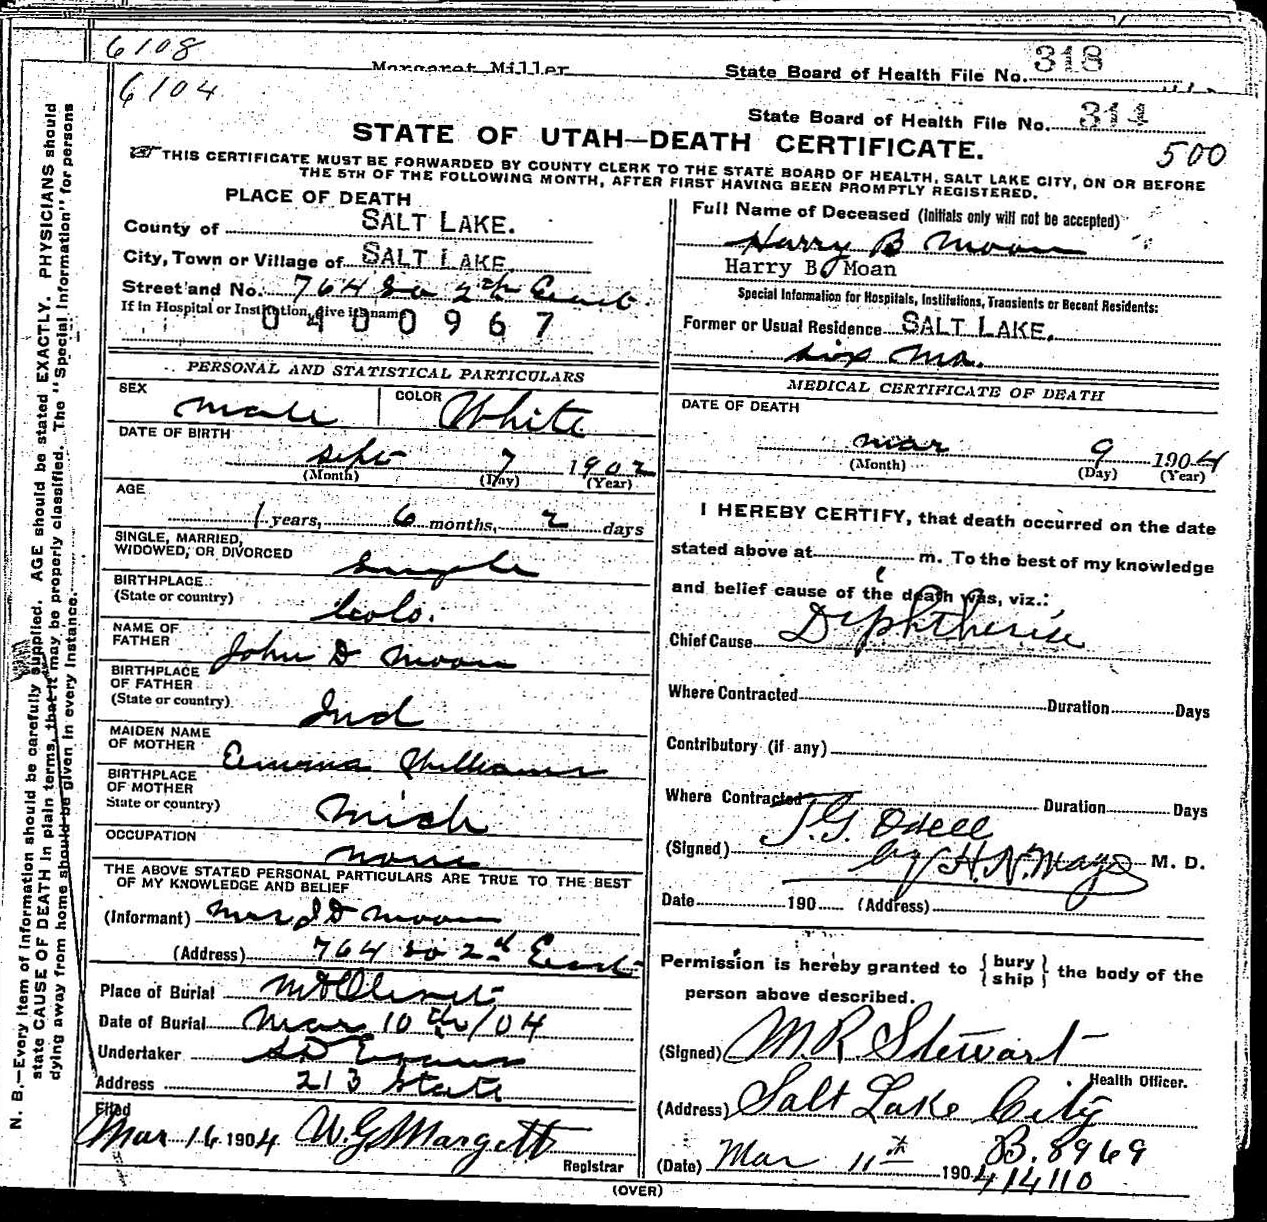 6108
Margaret Miller
State Board of Health File No. 318
6104
State Board of Health File No. 314
STATE OF UTAH—DEATH CERTIFICATE.
500
THIS CERTIFICATE MUST BE FORWARDED BY COUNTY CLERK TO THE STATE BOARD OF HEALTH, SALT LAKE CITY, ON OR BEFORE
THE 5TH OF THE FOLLOWING MONTH, AFTER FIRST HAVING BEEN PROMPTLY REGISTERED.
PLACE OF DEATH
County of SALT LAKE.
City, Town or Village of SALT LAKE
Street and No. 764 So 2nd East
If in Hospital or Institution, give its name
0400967
PERSONAL AND STATISTICAL PARTICULARS
SEX male COLOR White
DATE OF BIRTH
Sept 7 1902
(Month) (Day) (Year)
AGE
1 years, 6 months, 2 days
SINGLE, MARRIED,
WIDOWED, OR DIVORCED Single
BIRTHPLACE
(State or country) Colo.
NAME OF
FATHER John D Moan
BIRTHPLACE
OF FATHER
(State or country) Ind
MAIDEN NAME
OF MOTHER Emma Williams
BIRTHPLACE
OF MOTHER
State or country) Mich
OCCUPATION none
THE ABOVE STATED PERSONAL PARTICULARS ARE TRUE TO THE BEST
OF MY KNOWLEDGE AND BELIEF
(Informant) Mrs J D Moan
(Address) 764 So 2nd East
Place of Burial Mt Olivet
Date of Burial Mar 10th/04
Undertaker SD Evans
Address 213 State
Filed
Mar 16 1904 W.G. Margetts
Registrar
Full Name of Deceased (Initials only will not be accepted)
Harry B Moan
Harry B Moan
Special Information for Hospitals, Institutions, Transients or Recent Residents:
Former or Usual Residence SALT LAKE.
six Mo.
MEDICAL CERTIFICATE OF DEATH
DATE OF DEATH
Mar 9 1904
(Month) (Day) (Year)
I HEREBY CERTIFY, that death occurred on the date
stated above at m. To the best of my knowledge
and belief cause of the death was, viz.:
Chief Cause Diphtheria
Where Contracted Duration Days
Contributory (if any)
Where Contracted Duration Days
J.G. Odell
(Signed) by H.N. Mayo M. D.
Date 190 (Address)
Permission is hereby granted to { bury ship } the body of the
person above described.
(Signed) M.R. Stewart
Health Officer.
(Address) Salt Lake City
B. 8969
(Date) Mar 11th 1904
414110
(OVER)
N. B.—Every item of information should be carefully supplied. AGE should be stated EXACTLY. PHYSICIANS should
state CAUSE OF DEATH in plain terms, that it may be properly classified. The "Special Information" for persons
dying away from home should be given in every instance.